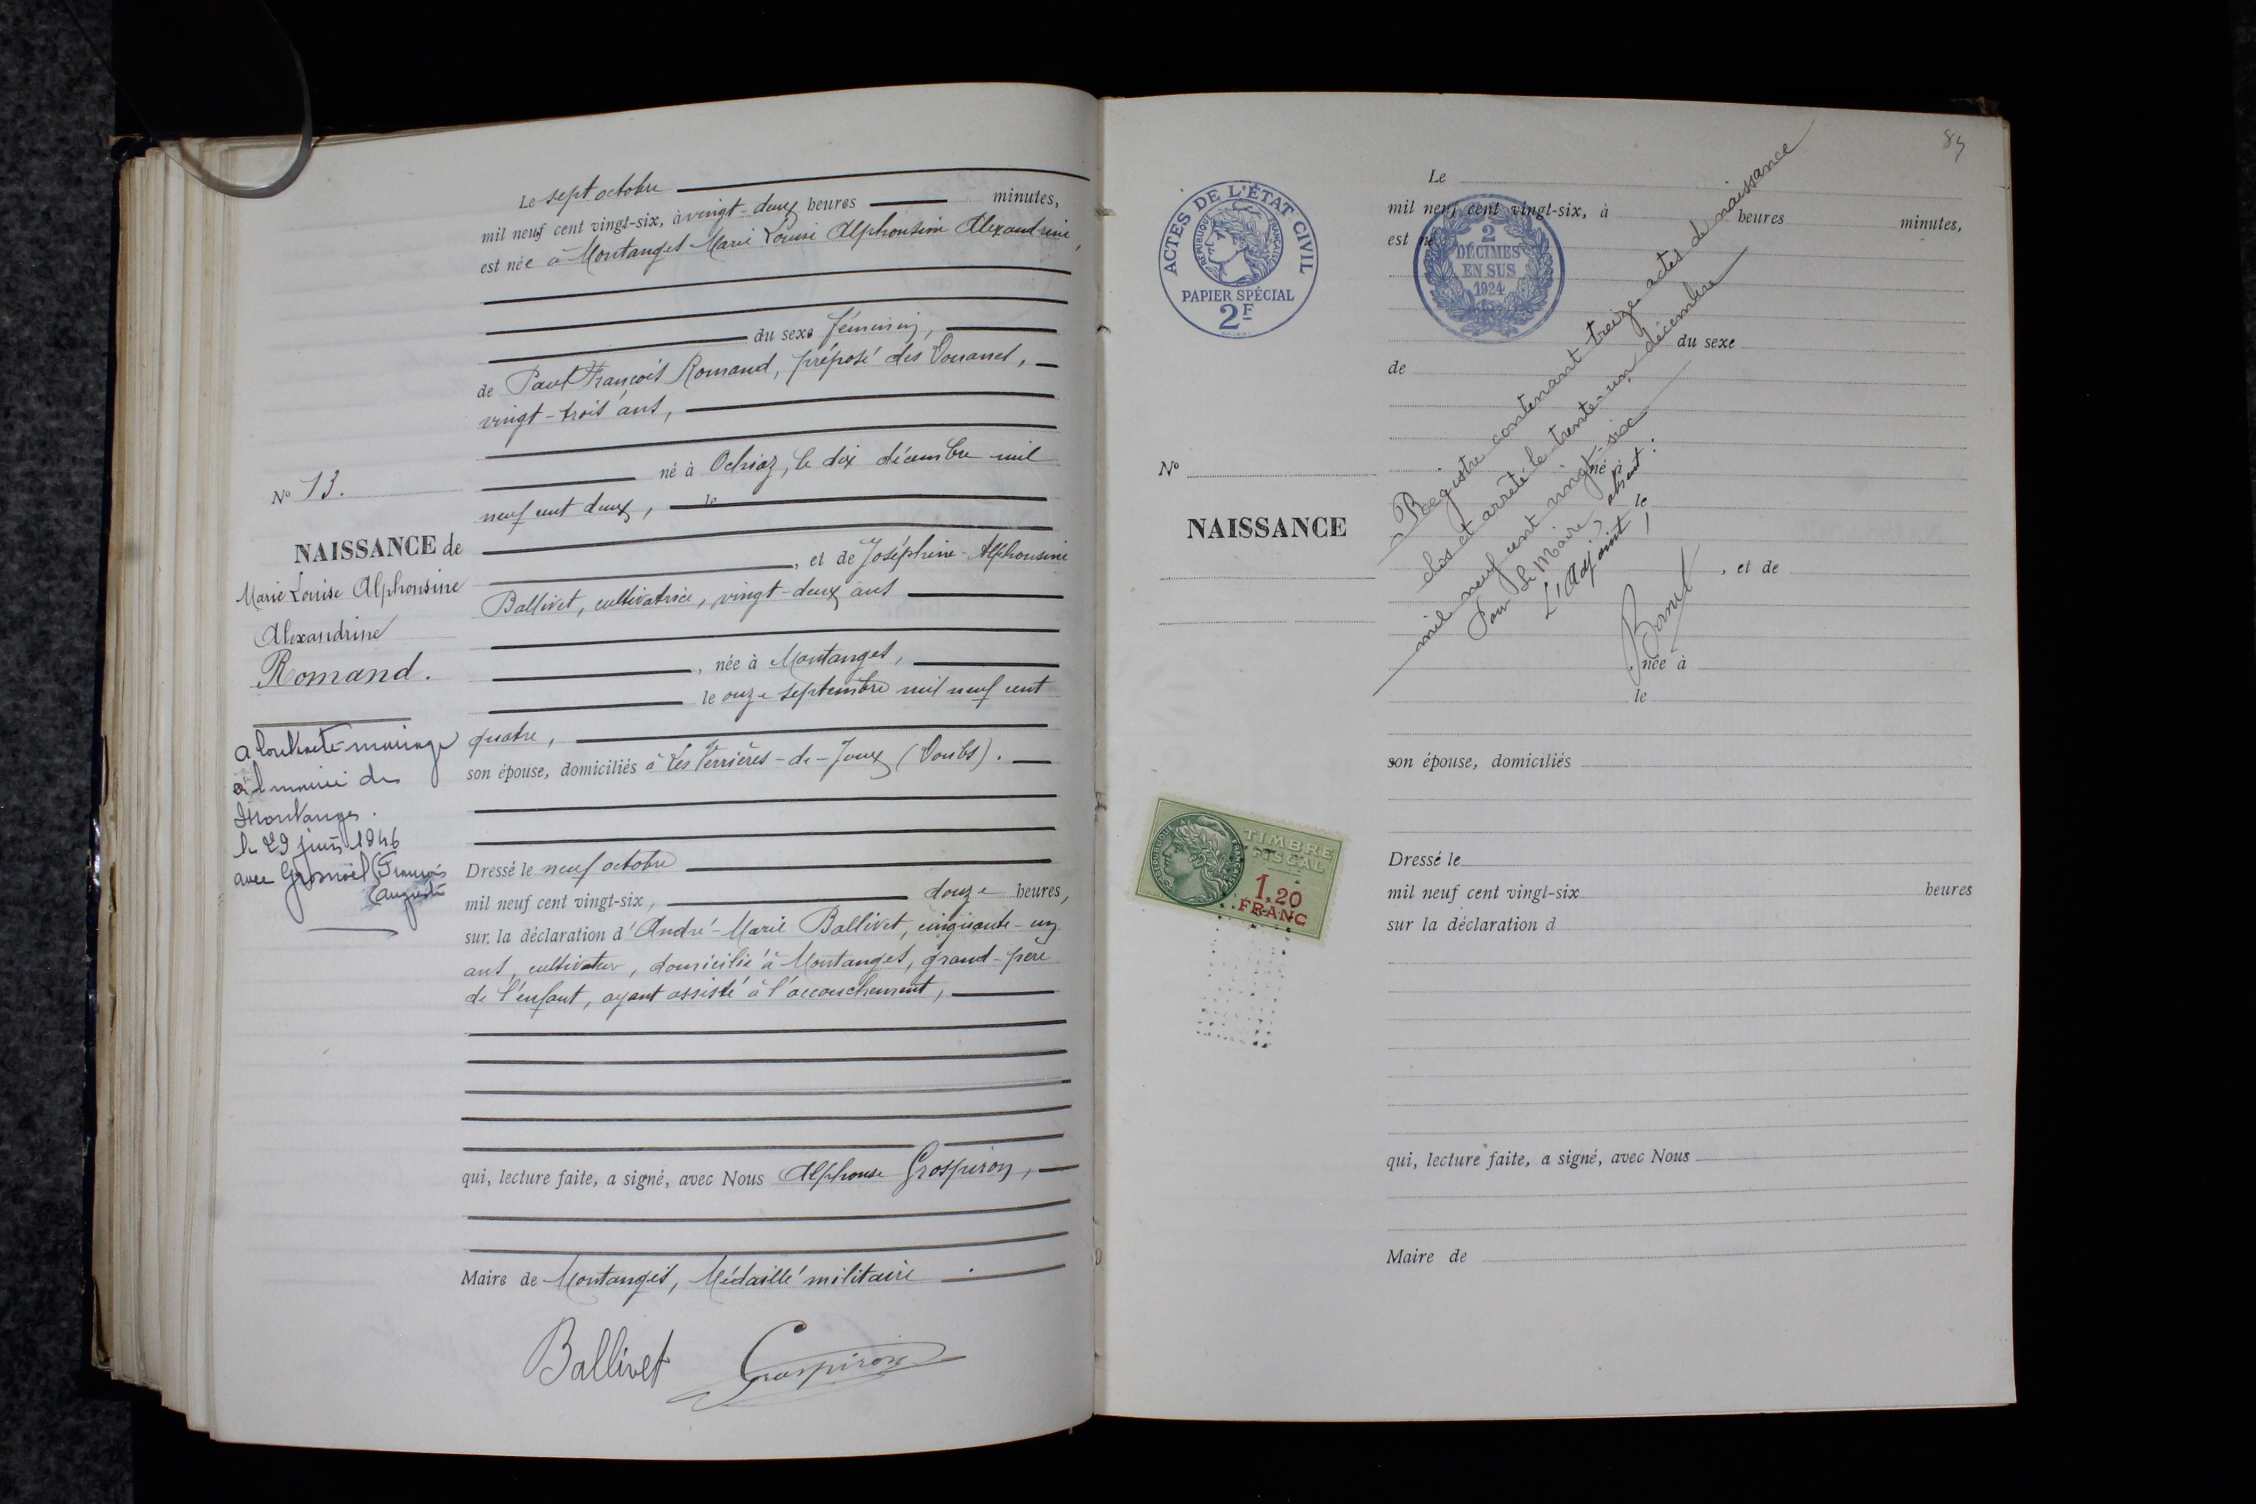 Le sept octobre
mil neuf cent vingt-six, à vingt-deux heures minutes,
est née à Montanges Marie Louise Alphonsine Alexandrine,
du sexe féminin,
de Paul François Romand, préposé des Douanes,
vingt-trois ans,
né à Ochiaz, le dix décembre mil
neuf cent deux, le
, et de Joséphine-Alphonsine
Ballivet, cultivatrice, vingt-deux ans
, née à Montanges,
le onze septembre mil neuf cent
quatre,
son épouse, domiciliés à Les Verrières-de-Joux (Doubs).
Dressé le neuf octobre
mil neuf cent vingt-six, douze heures,
sur la déclaration d'André-Marie Ballivet, cinquante-un
ans, cultivateur, domicilié à Montanges, grand-père
de l'enfant, ayant assisté à l'accouchement,
qui, lecture faite, a signé, avec Nous Alphonse Grospiron,
Maire de Montanges, Médaillé militaire.
Ballivet Grospiron
No 13.
NAISSANCE de
Marie Louise Alphonsine
Alexandrine
Romand.
a contracté mariage
à la mairie de
Montanges.
le 29 juin 1946
avec (François
Auguste
ACTES DE L'ÉTAT CIVIL
RÉPUBLIQUE FRANÇAISE
PAPIER SPÉCIAL
2F
2
DÉCIMES
EN SUS
1924
No
NAISSANCE
TIMBRE
FISCAL
1,20
FRANC
Le
mil neuf cent vingt-six, à heures minutes,
est né
du sexe
de
né à
le
, et de
, née à
le
son épouse, domiciliés
Dressé le
mil neuf cent vingt-six heures
sur la déclaration d
qui, lecture faite, a signé, avec Nous
Maire de
Registre contenant treize actes de naissance
clos et arrêté le trente-un décembre
mil neuf cent vingt-six
Pour Le Maire absent:
L'Adjoint,